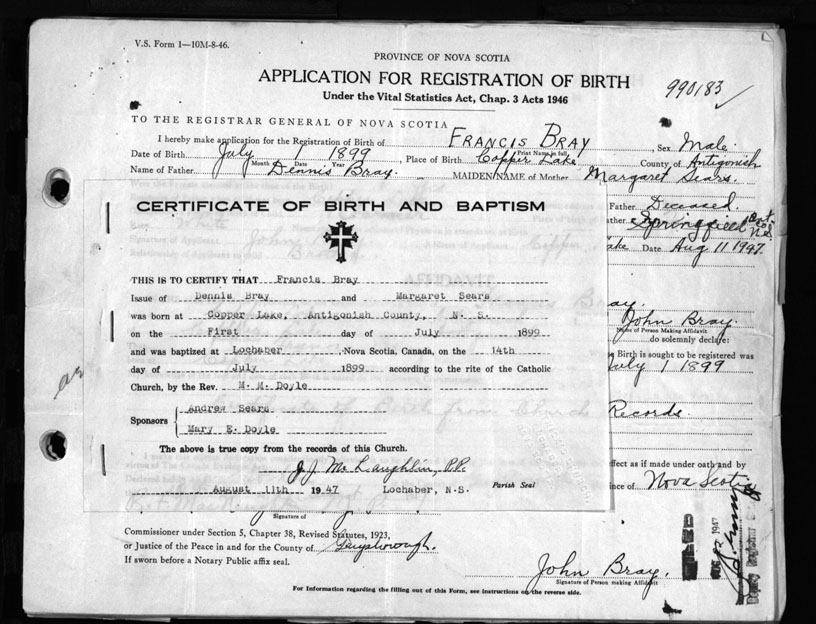 V.S. Form 1—10M-8-46.
PROVINCE OF NOVA SCOTIA
APPLICATION FOR REGISTRATION OF BIRTH
Under the Vital Statistics Act, Chap. 3 Acts 1946
990183
TO THE REGISTRAR GENERAL OF NOVA SCOTIA
I hereby make application for the Registration of Birth of FRANCIS BRAY, Sex Male.
Print Name in full
Date of Birth July 1 1899, Place of Birth Copper Lake County of Antigonish
Month Date Year
Name of Father Dennis Bray. MAIDEN NAME of Mother Margaret Sears.
Father Deceased.
Springfield
Lake Date Aug 11 1947.
CERTIFICATE OF BIRTH AND BAPTISM
THIS IS TO CERTIFY THAT Francis Bray
Issue of Dennis Bray and Margaret Sears
was born at Copper Lake, Antigonish County, N. S.
on the First day of July 1899
and was baptized at Lochaber, Nova Scotia, Canada, on the 14th
day of July 1899 according to the rite of the Catholic
Church, by the Rev. M. M. Doyle
Sponsors
Andrew Sears
Mary E. Doyle
The above is true copy from the records of this Church.
J. J. McLaughlin, P.P.
August 11th 1947 Lochaber, N.S. Parish Seal
Bray.
John Bray.
Name of Person Making Affidavit
do solemnly declare:
Birth is sought to be registered was
July 1 1899
Records.
effect as if made under oath and by
Province of Nova Scotia
Signature of
Commissioner under Section 5, Chapter 38, Revised Statutes, 1923,
or Justice of the Peace in and for the County of Guysborough.
If sworn before a Notary Public affix seal.
John Bray.
Signature of Person making Affidavit
For Information regarding the filling out of this Form, see instructions on the reverse side.